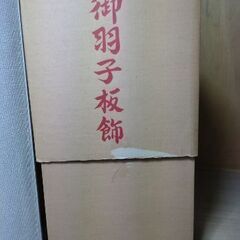 御羽子板飾